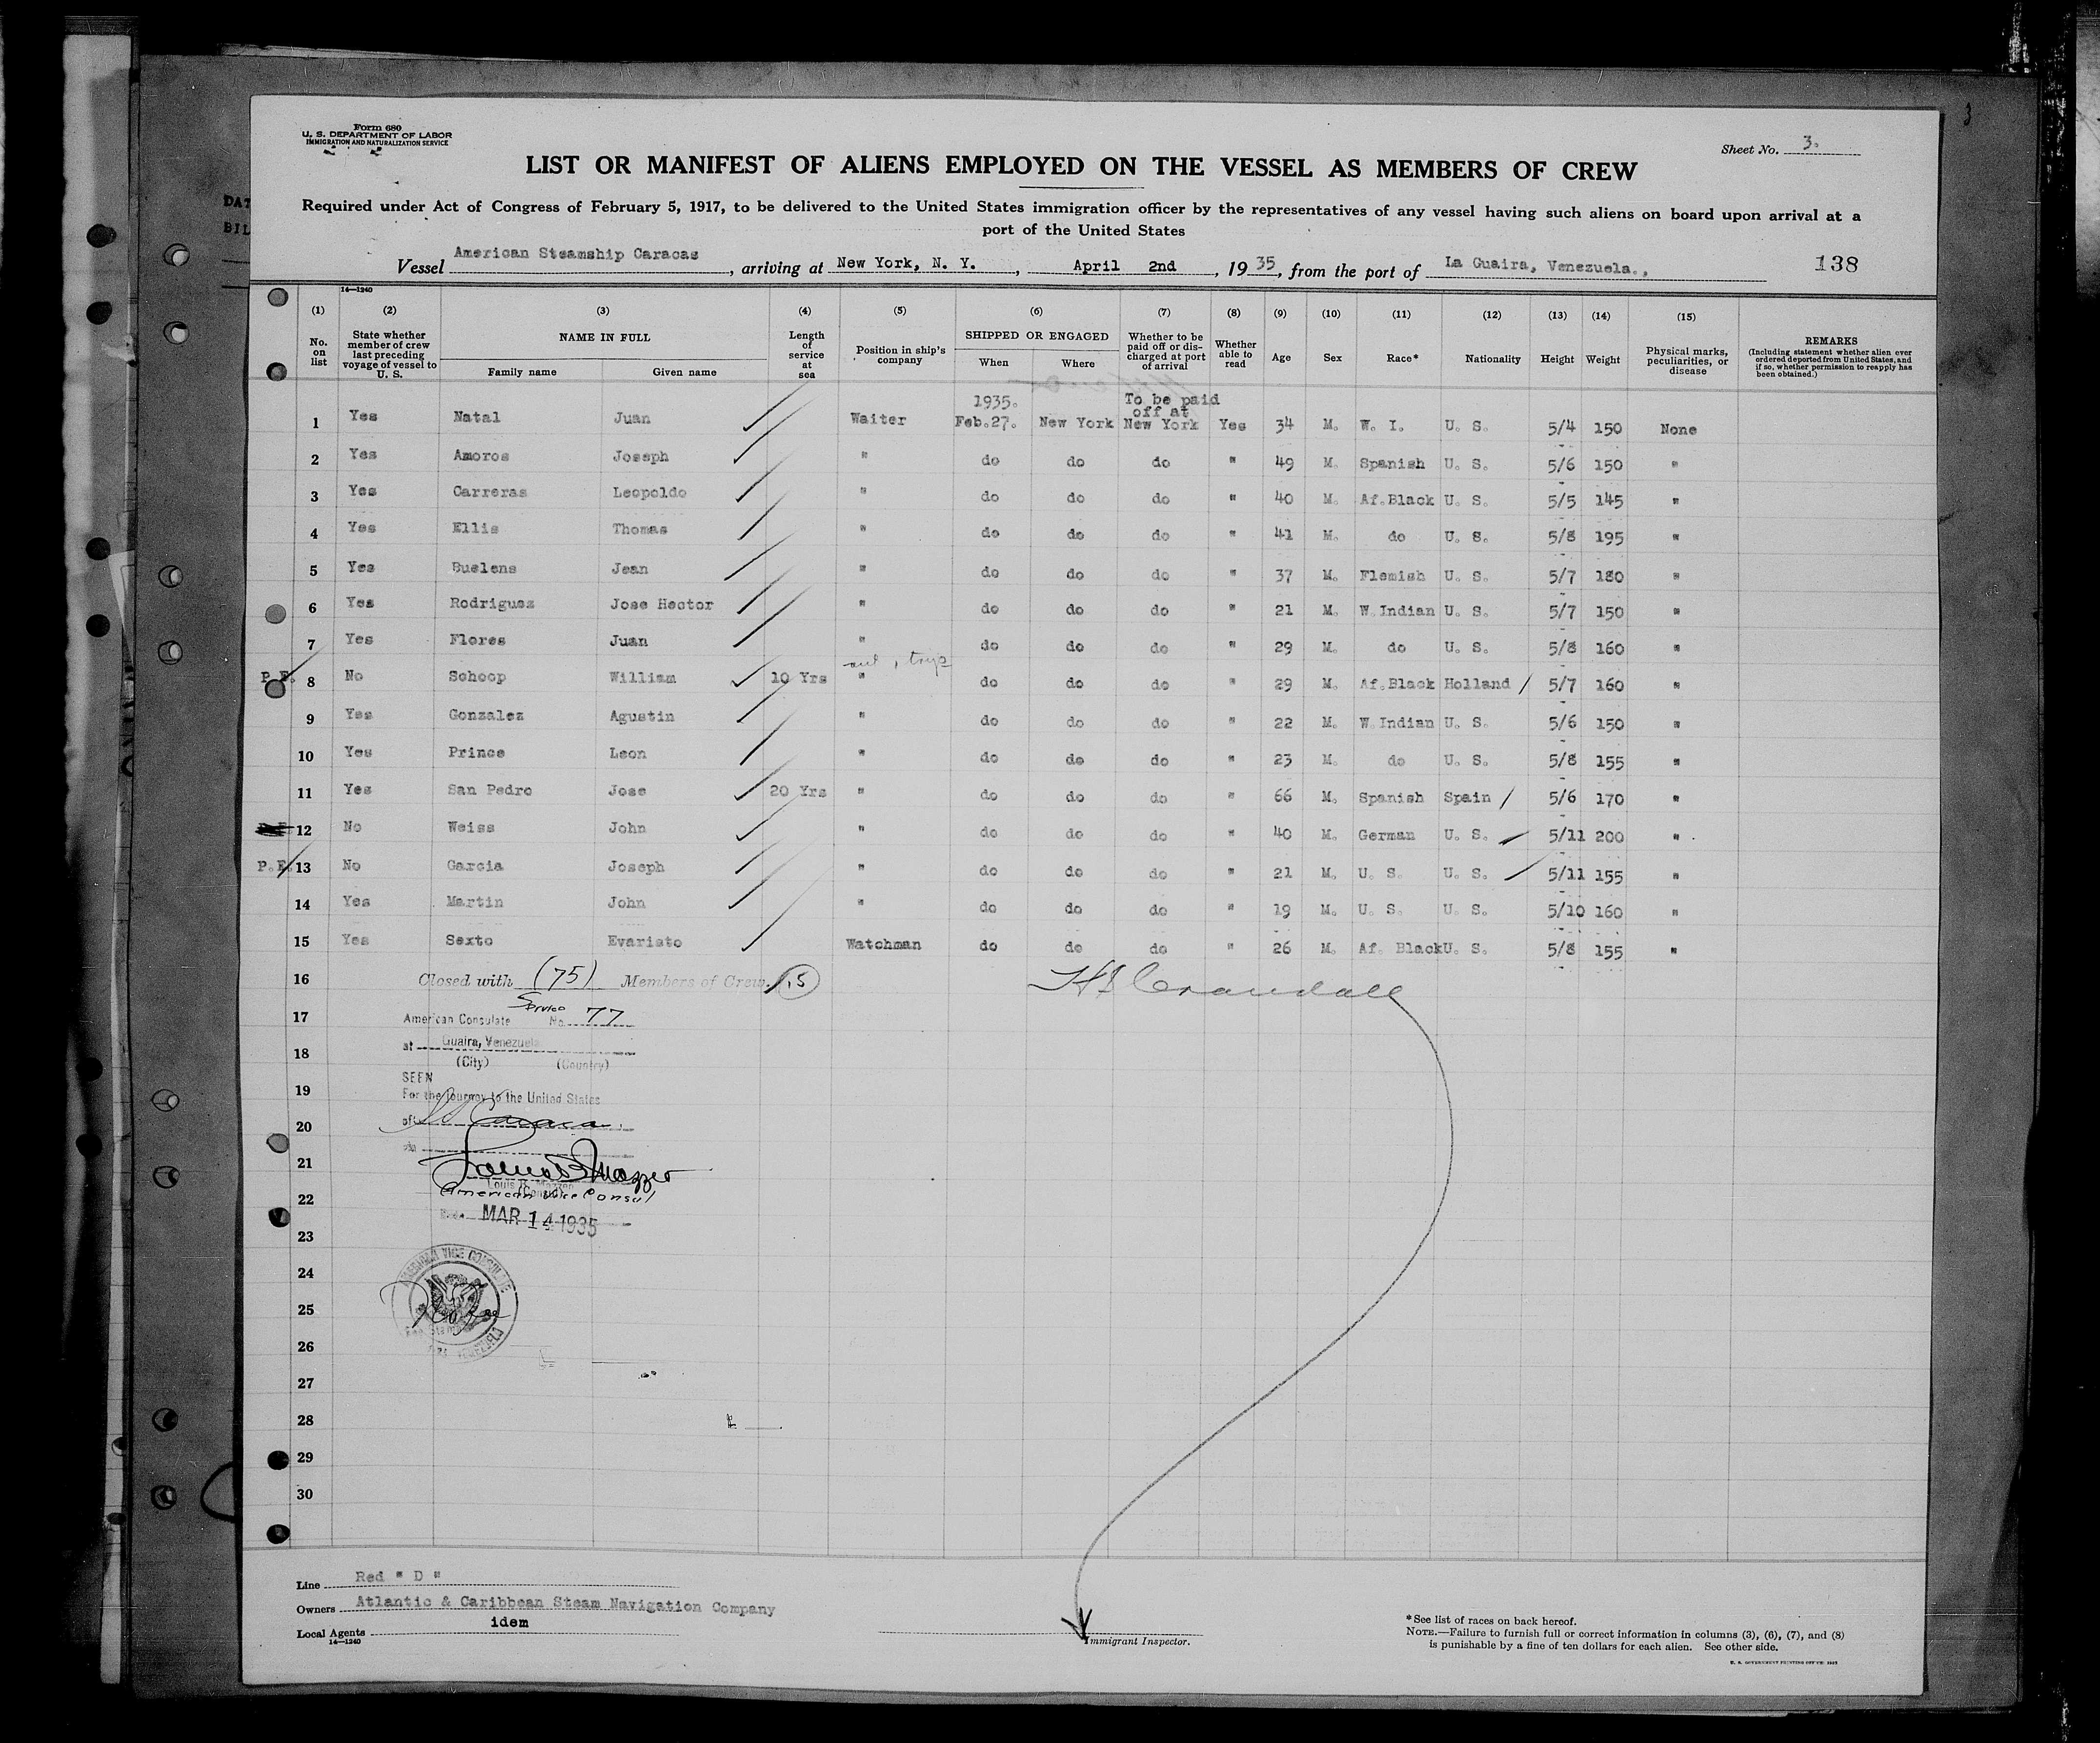 Form 680
U. S. DEPARTMENT OF LABOR
IMMIGRATION AND NATURALIZATION SERVICE
Sheet No. 3.
LIST OR MANIFEST OF ALIENS EMPLOYED ON THE VESSEL AS MEMBERS OF CREW
Required under Act of Congress of February 5, 1917, to be delivered to the United States immigration officer by the representatives of any vessel having such aliens on board upon arrival at a
port of the United States
Vessel American Steamship Caracas, arriving at New York, N. Y., April 2nd, 1935, from the port of La Guaira, Venezuela., 138
14—1240
(1) (2) (3) (4) (5) (6) (7) (8) (9) (10) (11) (12) (13) (14) (15)
No. on list State whether member of crew last preceding voyage of vessel to U. S. NAME IN FULL Family name Given name Length of service at sea Position in ship's company SHIPPED OR ENGAGED When Where Whether to be paid off or discharged at port of arrival Whether able to read Age Sex Race* Nationality Height Weight Physical marks, peculiarities, or disease REMARKS (Including statement whether alien ever ordered deported from United States, and if so, whether permission to reapply has been obtained.)
1935. To be paid off at
1 Yes Natal Juan Waiter Feb.27. New York New York Yes 34 M. W. I. U. S. 5/4 150 None
2 Yes Amoros Joseph " do do do " 49 M. Spanish U. S. 5/6 150 "
3 Yes Carreras Leopoldo " do do do " 40 M. Af.Black U. S. 5/5 145 "
4 Yes Ellis Thomas " do do do " 41 M. do U. S. 5/8 195 "
5 Yes Buelens Jean " do do do " 37 M. Flemish U. S. 5/7 180 "
6 Yes Rodriguez Jose Hector " do do do " 21 M. W.Indian U. S. 5/7 150 "
7 Yes Flores Juan " do do do " 29 M. do U. S. 5/8 160 "
P.F. 8 No Schoop William 10 Yrs " do do do " 29 M. Af.Black Holland 5/7 160 "
9 Yes Gonzalez Agustin " do do do " 22 M. W.Indian U. S. 5/6 150 "
10 Yes Prince Leon " do do do " 23 M. do U. S. 5/8 155 "
11 Yes San Pedro Jose 20 Yrs " do do do " 66 M. Spanish Spain 5/6 170 "
12 No Weiss John " do do do " 40 M. German U. S. 5/11 200 "
P.F. 13 No Garcia Joseph " do do do " 21 M. U. S. U. S. 5/11 155 "
14 Yes Martin John " do do do " 19 M. U. S. U. S. 5/10 160 "
15 Yes Sexto Evaristo Watchman do do do " 26 M. Af. Black U. S. 5/8 155 "
16 Closed with (75) Members of Crew. 15 Crandall
17 American Consulate Service No. 77
18 at Guaira, Venezuela
(City) (Country)
SEEN
19 For the journey to the United States
20 of
21 via
Louis B. Mazzeo
22 American Vice Consul
MAR 14 1935
23
24 AMERICAN VICE CONSULATE
25
26
27
28
29
30
Line Red " D "
Owners Atlantic & Caribbean Steam Navigation Company
Local Agents idem
14—1240
Immigrant Inspector.
*See list of races on back hereof.
NOTE.—Failure to furnish full or correct information in columns (3), (6), (7), and (8)
is punishable by a fine of ten dollars for each alien. See other side.